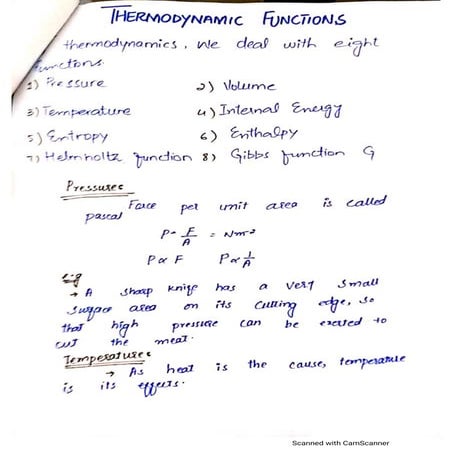 THERMODYNAMIC FUNCTIONS
thermodynamics, we deal with eight
functions
1) Pressure 2) Volume
3) Temperature 4) Internal Energy
5) Entropy 6) Enthalpy
7) Helmholtz function 8) Gibbs function G
Pressure:
Force per unit area is called
pascal
P = F/A = Nm⁻²
P ∝ F P ∝ 1/A
e.g
→ A sharp knife has a very small
surface area on its cutting edge, so
that high pressure can be exerted to
cut the meat.
Temperature:
→ As heat is the cause, temperature
is its effects.
Scanned with CamScanner